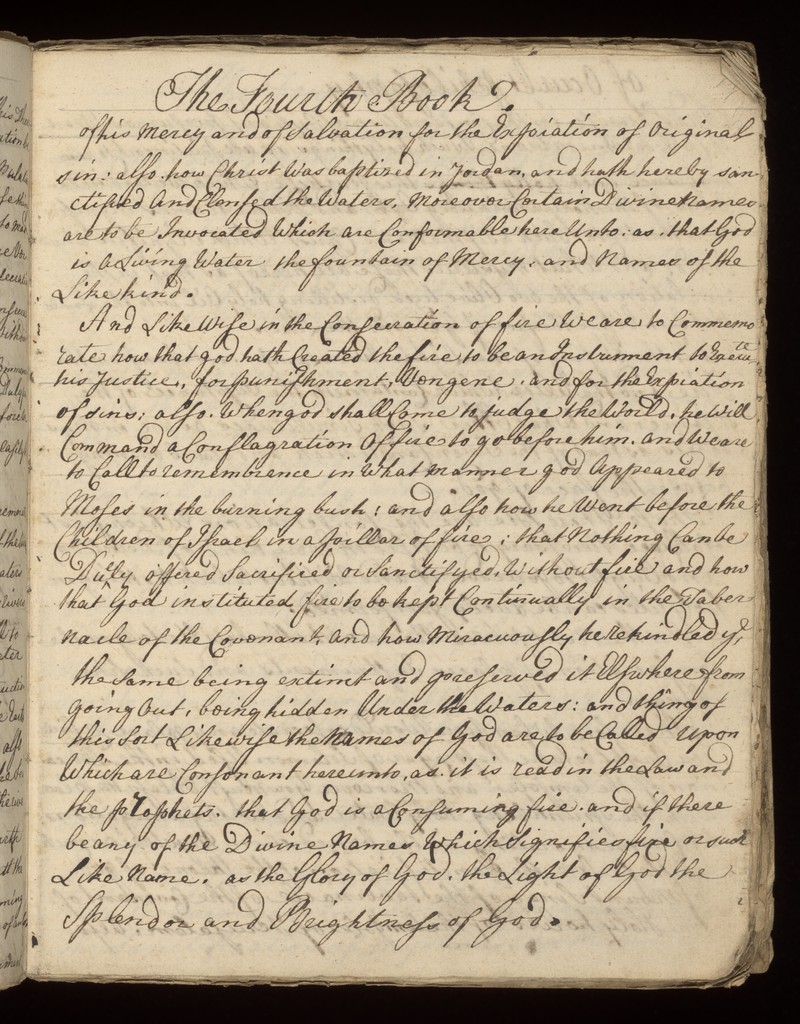 The Fourth Book.
of his Mercy and of Salvation for the Expiation of Original
sin: also how Christ Was baptized in Jordan, and hath hereby san-
ctified And Clensed the Waters, Moreover Certain Divine Names
are to be Invocated Which are Conformable here Unto: as that God
is A Living Water the fountain of Mercy, and Names of the
Like kind.
And Like Wise in the Consecration of fire We are to Commemo
rate how that god hath Created the fire to be an Instrument to Execute
his Justice, for punishment, Vengene, and for the Expiation
of sins: also. When god shall Come to judge the World, he Will
Command a Conflagration Of fire to go before him. and We are
to Call to remembrence in What manner god Appeared to
Moses in the burning bush: and also how he Went before the
Children of Israel in a Poillar of fire; that Nothing Can be
Duely offered Sacrificed or Sanctifyed, Without fire and how
that God instituted fire to be kept Continually in the Taber
nacle of the Covenant, and how Miracuously he rekindled ye,
the same being extinct and preserved it Elswhere from
going Out, being hidden Under the Waters: and things of
this Sort Likewise the Names of God are to be Called Upon
Which are Consonant hereunto, as it is read in the Law and
the prophets. that God is a Consuming fire. and if there
be any of the Divine Names Which Signifies fire or such
Like Name. as the Glory of God. the Light of God the
Splendor and Brightness of God.